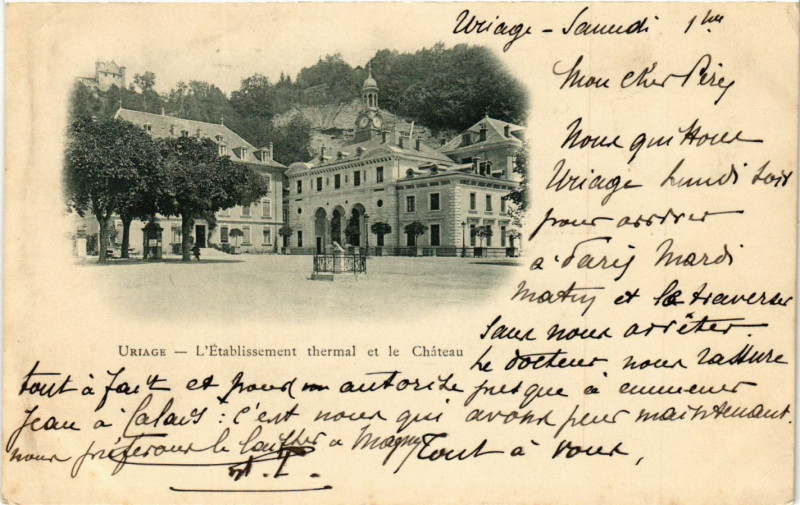 Uriage – Samedi 1er
Mon cher Péry
Nous quittons
Uriage lundi soir
pour arriver
à Paris Mardi
matin et le traverser
sans nous arrêter.
Le docteur nous rassure
URIAGE — L'Établissement thermal et le Château
tout à fait et nous autorise presque à emmener
Jean à Calais : c'est nous qui avons peur maintenant.
nous préférons le laisser à Magny
Tout à vous,